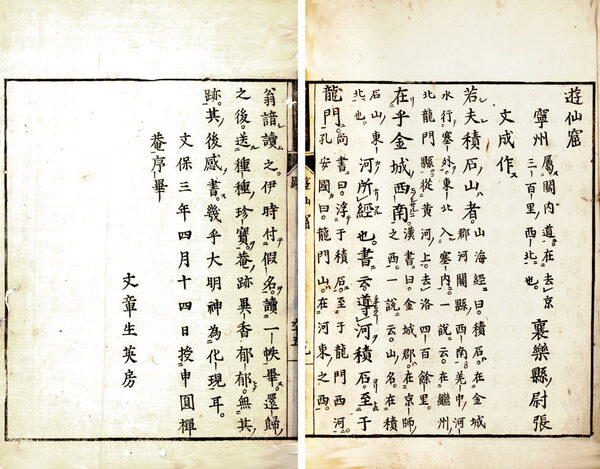 遊仙窟
寧州
屬關内道在去京
三百里西北也
襄樂縣尉張
文成作
若夫積石山者
山海經曰積石在金城
郡河關縣西南羌中河
水行塞外東北入塞内一說云在繼州
北龍門縣從黃河上去洛四百餘里
在乎金城西南
漢書曰金城郡在京師
之西一說云山名在積
石山東
北也
河所經也書云導河積石至于
龍門
尚書曰浮于積石至于龍門西河
孔安國曰龍門山在河東之西
翁諳讀之伊時付假名讀一帙畢還歸
之後送種種珍寶菴跡異香郁郁無其
跡其後感書幾乎大明神為化現耳
文保三年四月十四日授申圓禪
菴序畢
文章生英房